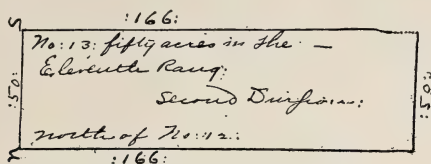 :166:
S
No: 13: fifty acres in the —
Eleventh Rang:
Second Division:
north of No: 12:
:50:
:50:
N
:166: